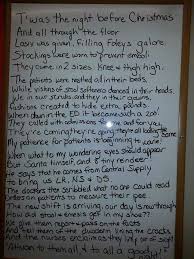 T'was the night before Christmas
And all through the floor
Lasix was given, Filling Foleys galore
Stockings were worn to prevent emboli
They come in 2 sizes. Knee & thigh high.
The patients were nestled all in their beds,
While visions of stool softeners danced in their heads.
We in our scrubs and they in their gowns,
Cushions created to hide extra pounds.
When down in the ED it became such a zoo!
They called with admissions for me and for you.
They're coming they're going they're all looking the same
My patience for patients is beginning to wane!
When what to my wondering eyes should appear
But Santa himself, and 8 tiny reindeer
He says that he comes from Central Supply
to bring us LR, NS & D5
The doctors are scribbled what no one could read
on patients to measure their pee
The new shift is arriving, our day is thru
How did stool get in my shoe??
We give them report
And tell them of the
the nurses exclaimes they
to all & to all a good